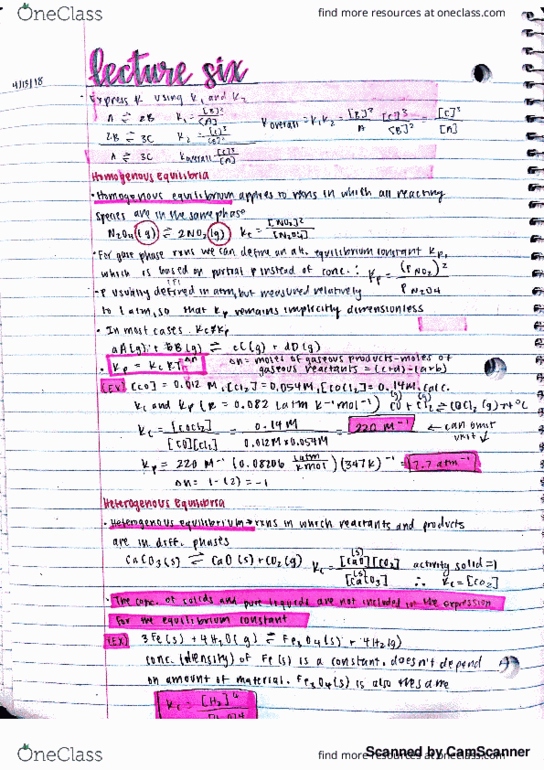 OneClass
find more resources at oneclass.com
4/15/18
lecture six
Express K using K₁ and K₂
A ⇌ 2B K₁ = [B]²/[A]
2B ⇌ 3C K₂ = [C]³/[B]²
K overall = K₁K₂ = [B]²/A [C]³/[B]² = [C]³/[A]
A ⇌ 3C K overall [C]³/[A]
Homogenous Equilibria
• Homogenous equilibrium applies to rxns in which all reacting
species are in the same phase
N₂O₄(g) ⇌ 2NO₂(g) Kc = [NO₂]²/[N₂O₄]
• For gase phase rxns we can define an alt. equilibrium constant Kp,
which is based on partial P instead of conc. : Kp = (P NO₂)²/P N₂O4
• P usually defined in atm, but measured relatively
to 1 atm, so that Kp remains implicitly dimensionless
• In most cases Kc≠Kp
aA(g) + bB(g) ⇌ cC(g) + dD(g)
• Kp = KcRT^Δn Δn = moles of gaseous products - moles of
gaseous reactants = (c+d) - (a+b)
(EX) [CO] = 0.012 M, [Cl₂] = 0.054M, [COCl₂] = 0.14M. calc.
Kc and Kp (R = 0.082 L atm K⁻¹ mol⁻¹) CO(g) + Cl₂(g) ⇌ COCl₂ (g) 74°C
Kc = [COCl₂]/[CO][Cl₂] = 0.14M/0.012M x 0.054M = 220 M⁻¹ ← can omit
unit
Kp = 220 M⁻¹ (0.08206 Latm/Kmol)(347K)⁻¹ = 7.7 atm⁻¹
Δn = 1-(2) = -1
Heterogenous Equilibria
• Heterogenous equilibrium → rxns in which reactants and products
are in diff. phases
CaCO₃(s) ⇌ CaO(s) + CO₂(g) Kc = [CaO](s)[CO₂]/[CaCO₃](s) activity solid = 1
∴ Kc = [CO₂]
• The conc. of solids and pure liquids are not included in the expression
for the equilibrium constant
(EX) 3Fe(s) + 4H₂O(g) ⇌ Fe₃O₄(s) + 4H₂(g)
conc. (density) of Fe(s) is a constant. doesn't depend
on amount of material. Fe₃O₄(s) is also the same
Kc = [H₂]⁴
OneClass
find more resources at oneclass.com
Scanned by CamScanner